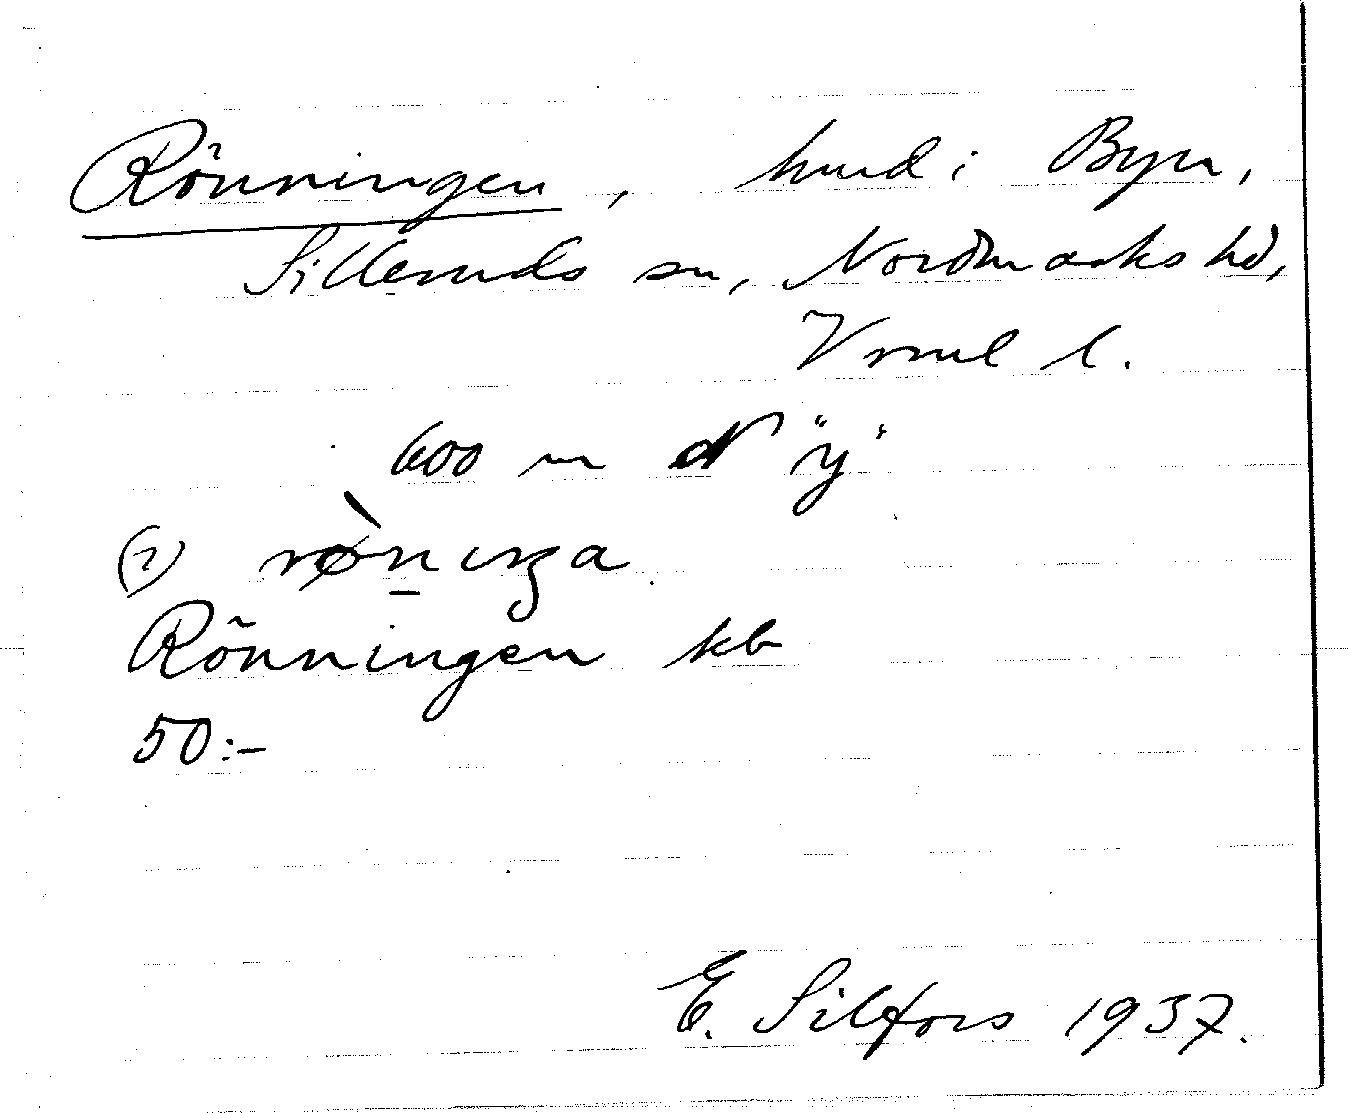 Rönningen, hmd i Byn,
Silleruds sn, Nordmarks hd,
Vrml l.
600 m N "y"
(2) rø̀nıŋa
Rönningen kb
50:-
E. Silfors 1937.